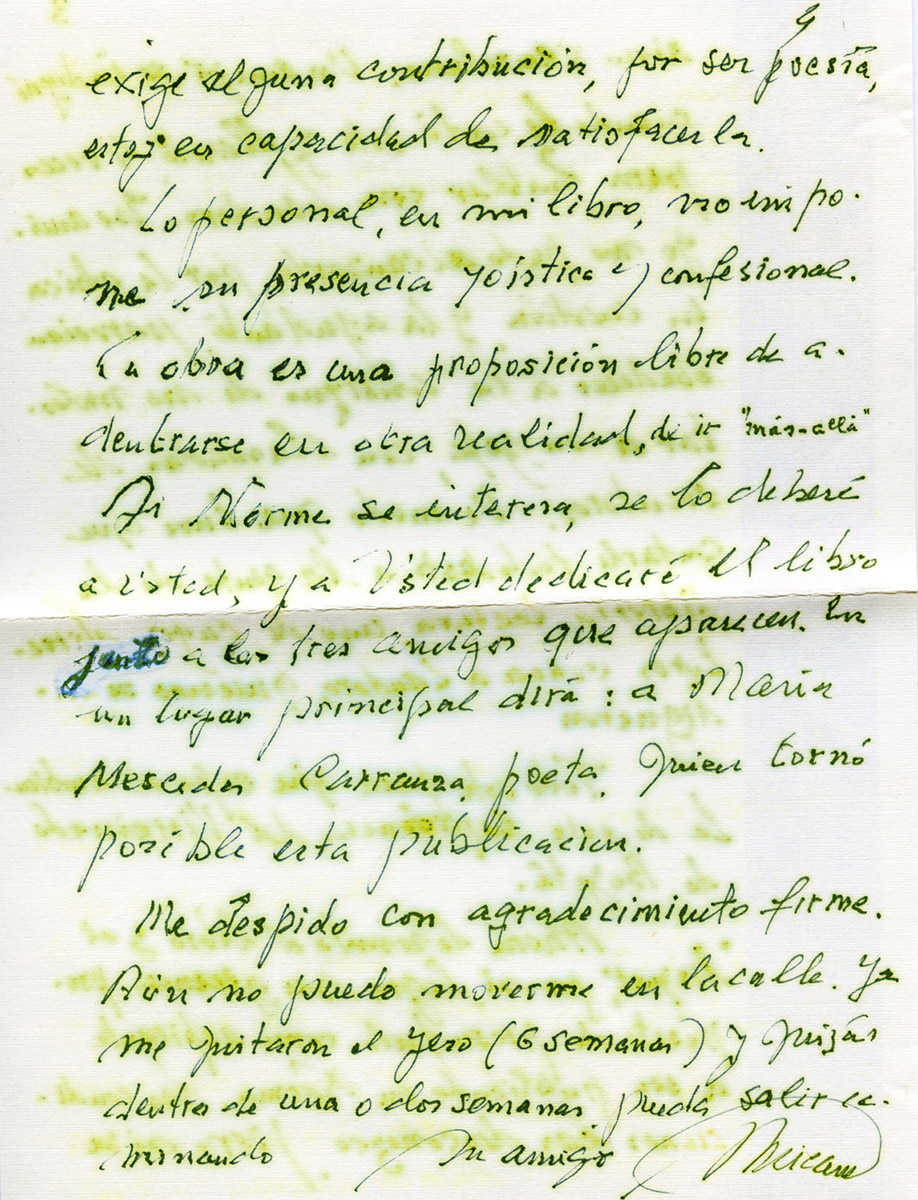 4
exige alguna contribución, por ser poesía,
estoy en capacidad de satisfacerla.
Lo personal, en mi libro, no impo-
ne su presencia yoística y confesional.
La obra es una proposición libre de a-
dentrarse en otra realidad, de ir "más-allá"
Si Norma se interesa, se lo deberé
a usted, y a Usted dedicaré el libro
junto a los tres amigos que aparecen. En
un lugar principal dirá: a María
Mercedes Carranza, poeta, quien tornó
posible esta publicacion.
Me despido con agradecimiento firme.
Aún no puedo moverme en la calle. Ya
me quitaron el yeso (6 semanas) y quizás
dentro de una o dos semanas pueda salir ca-
minando Su amigo